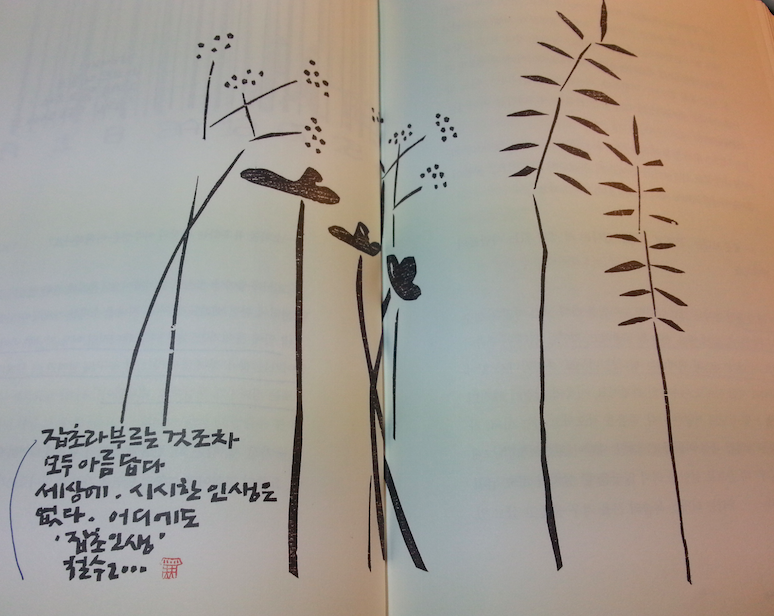 잡초라 부르는 것조차
모두 아름답다
세상에. 시시한 인생은
없다. 어디에도
'잡초인생'
철수2000